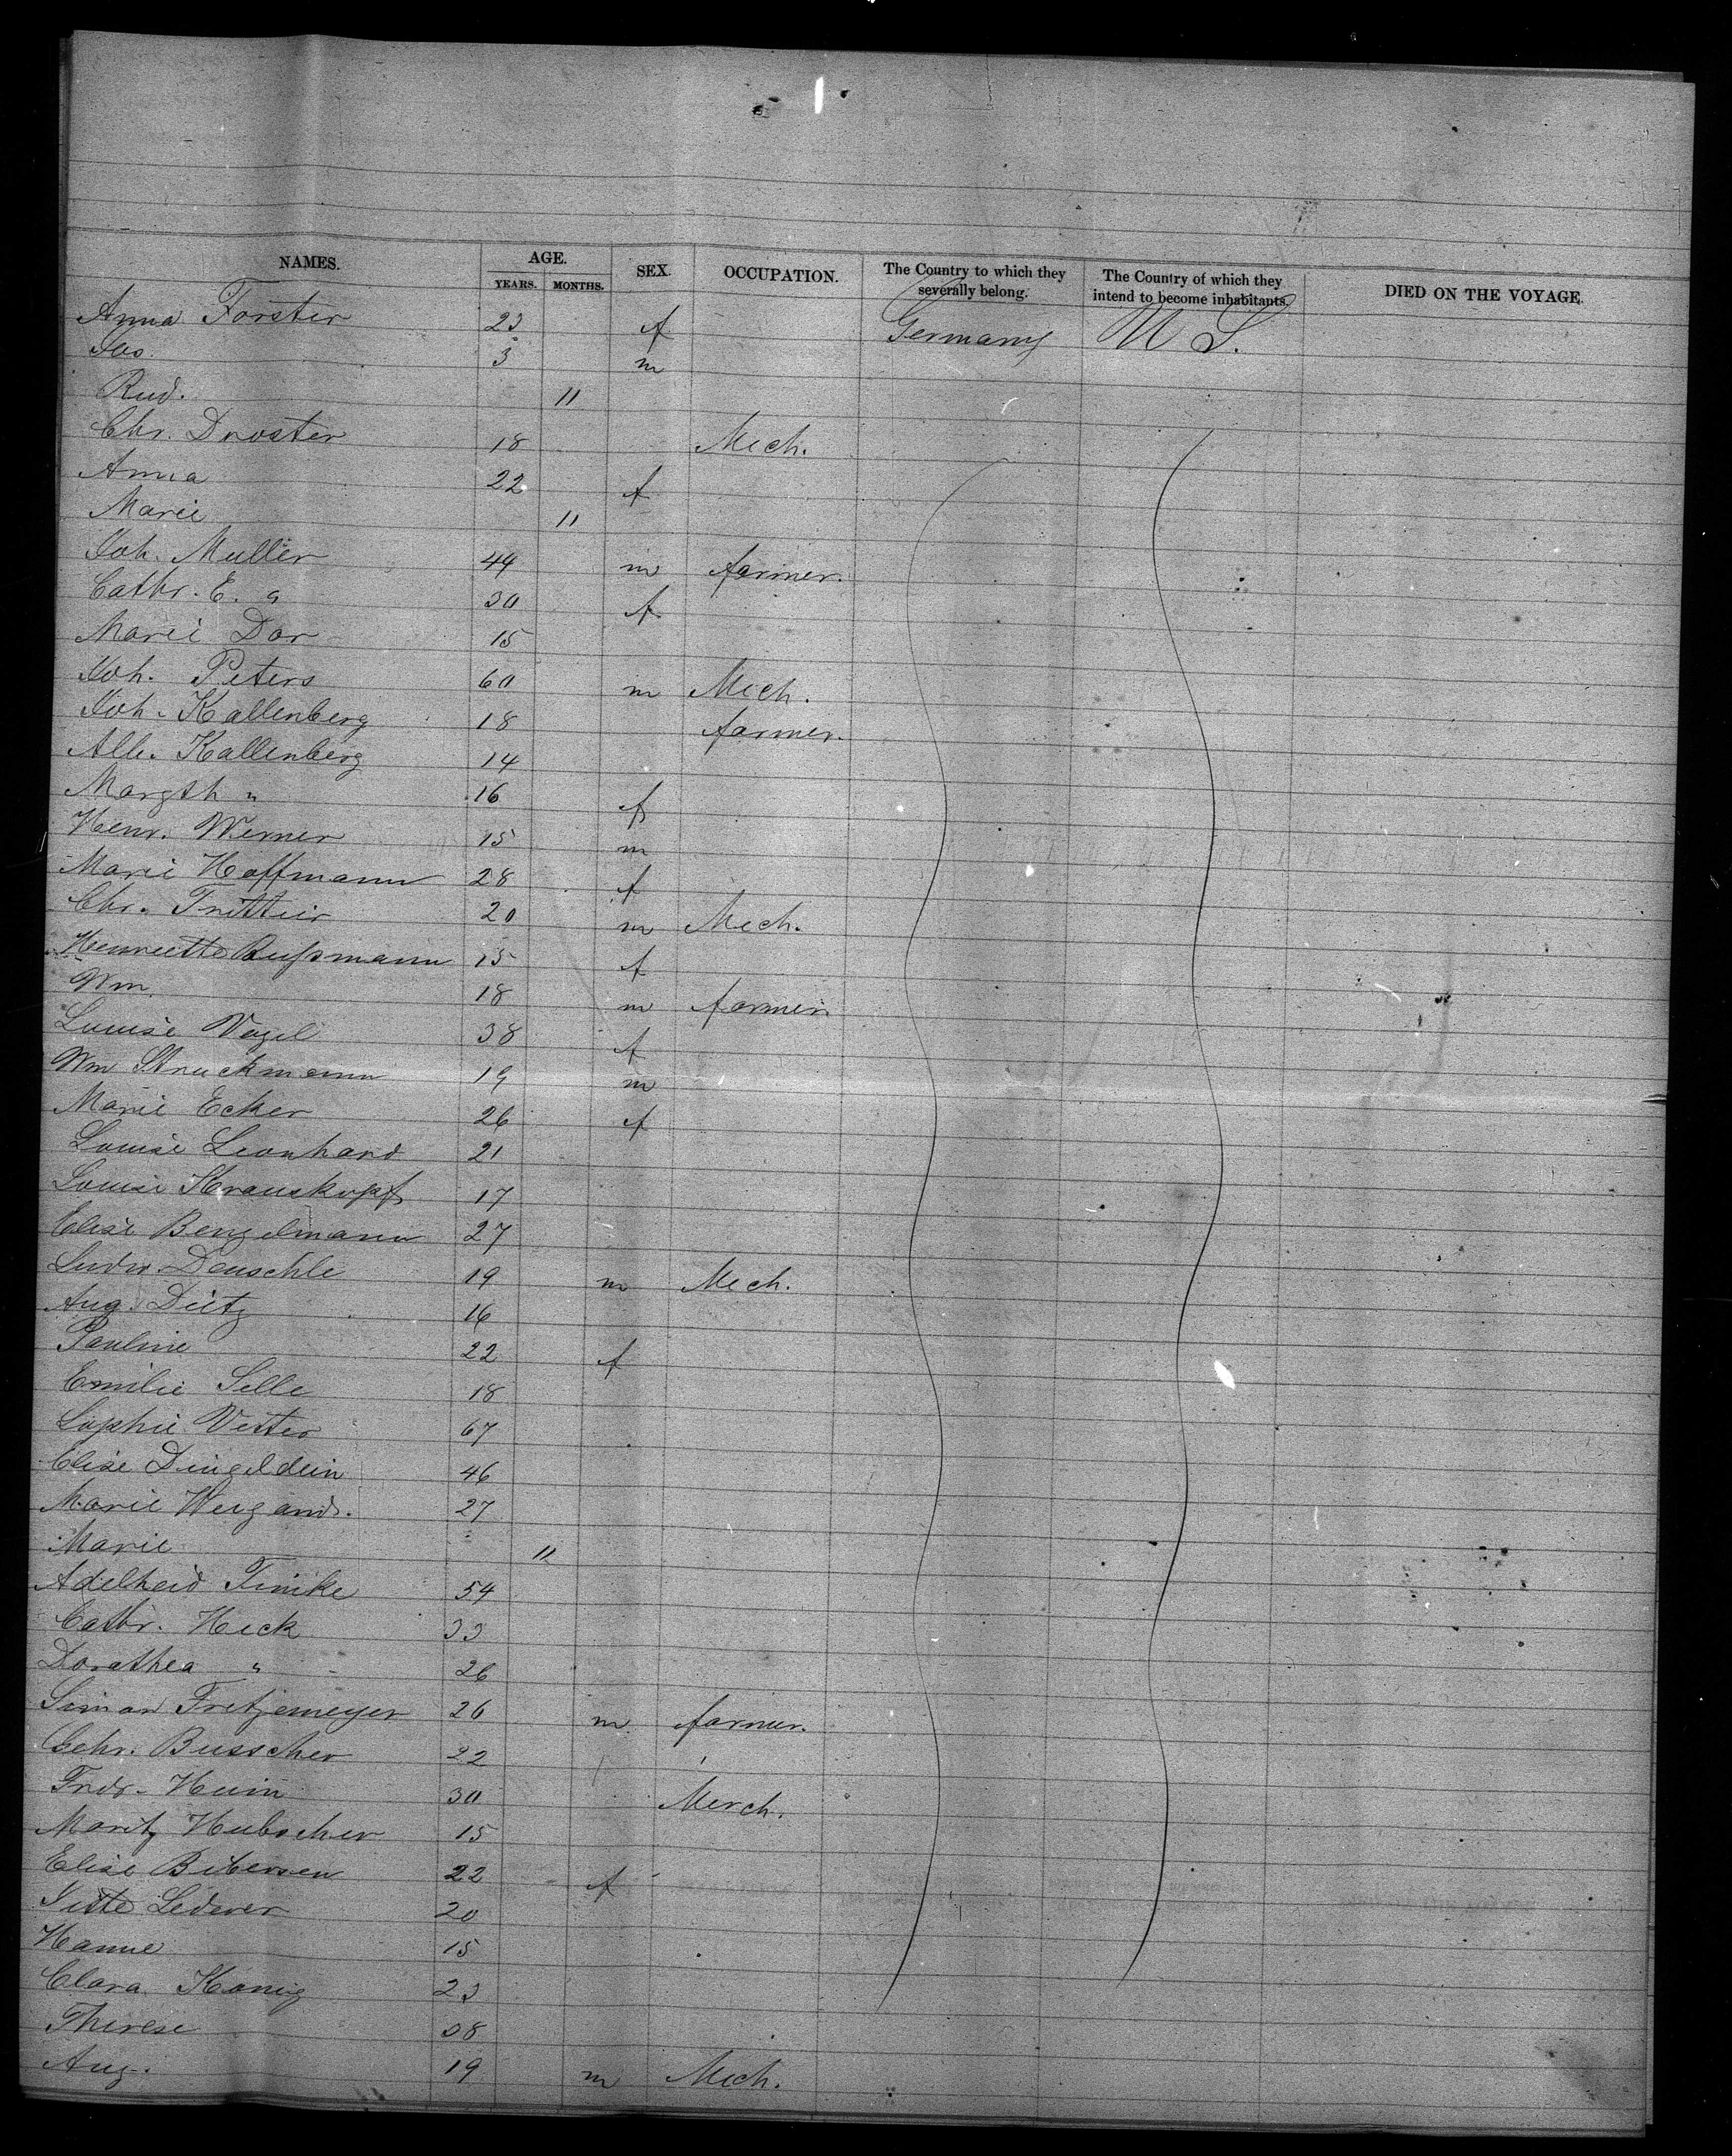 NAMES. AGE. SEX. OCCUPATION. The Country to which they severally belong. The Country of which they intend to become inhabitants. DIED ON THE VOYAGE.
YEARS. MONTHS.
Anna Forster 23 f Germany U S.
3 m
Rud. 11
Chr. Droster 18 Mech.
Anna 22 f
Marie 11
Joh. Muller 44 m farmer.
Cathr. E. " 30 f
Marie Dor 15
Joh. Peters 60 m Mich.
Joh. Kallenberg 18 farmer.
Alb. Kallenberg 14
Margth " 16 f
Henr. Werner 15 m
Marie Hoffmann 28 f
Chr. 20 m Mech.
Henriette Rußmann 15 f
Wm. 18 m farmer.
Louise Vogel 38 f
Wm Struckmann 19 m
Marie Ecker 26 f
Louise Leonhard 21
Louise Krauskopf 17
Elise Bengelmann 27
Ludw. Deuschle 19 m Mech.
Aug. Dietz 16
Pauline 22 f
Emilie Selle 18
Sophie Vester 67
Elise Dingeldein 46
Marie Weigand. 27
Marie 11
Adelheid Timke 54
Cathr. Heck 33
Dorathea " 26
Simon Fretzemeyer 26 m farmer.
Busscher 22
Fridr. Heim 30 Merch.
Moritz Hubscher 15
Elise Bibersen 22 f
Jette Lederer 20
Hanne 15
Clara Konig 23
Therese 38
Aug. 19 m Mech.